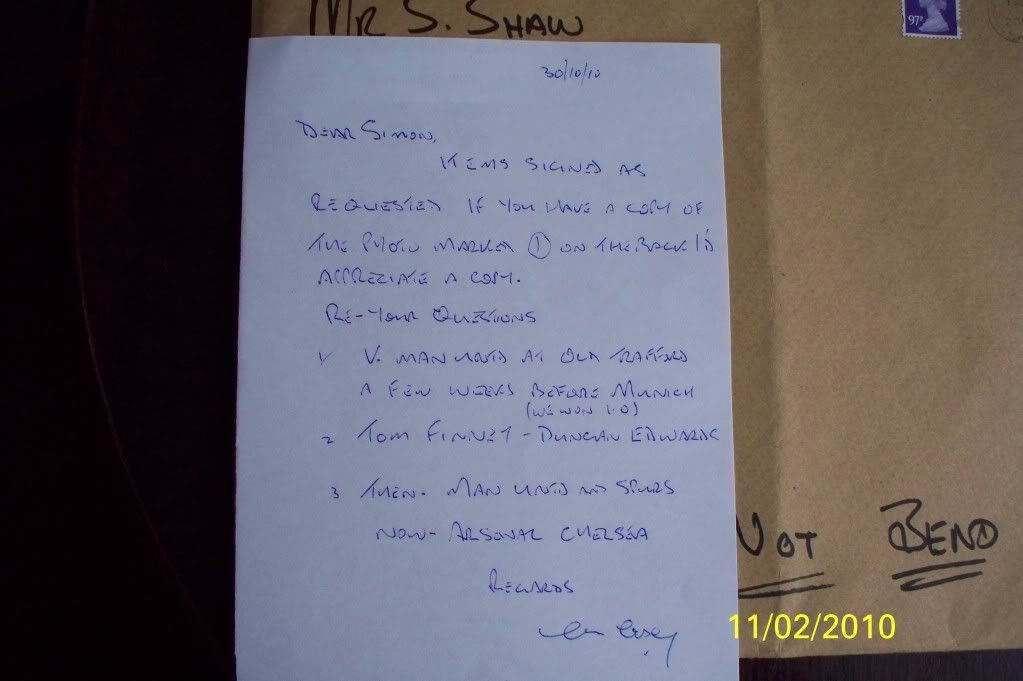 MR S. SHAW
97P
30/10/10
DEAR SIMON,
ITEMS SIGNED AS
REQUESTED IF YOU HAVE A COPY OF
THE PHOTO MARKED ① ON THE BACK I'D
APPRECIATE A COPY.
RE-YOUR QUESTIONS
1/ V. MAN UNTD AT OLD TRAFFORD
A FEW WEEKS BEFORE MUNICH
(WE WON 1.0)
2 TOM FINNEY - DUNCAN EDWARDS
3 THEN- MAN UNTD AND SPURS
NOW- ARSENAL CHELSEA
REGARDS
NOT BEND
11/02/2010